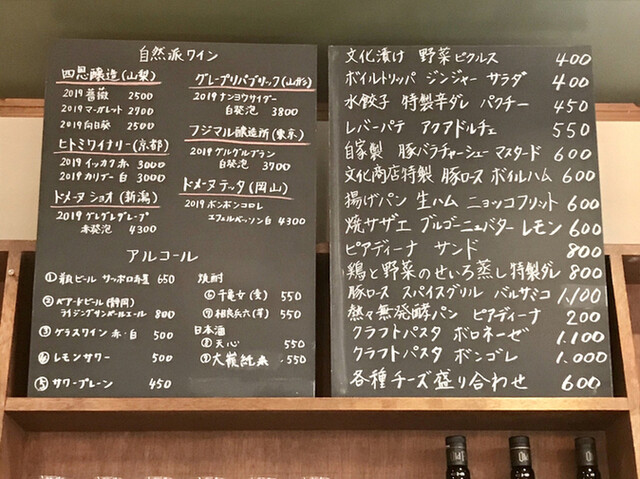 自然派ワイン
四恩醸造(山梨)
2019 薔薇 2500
2019 マーガレット 2700
2019 向日葵 2500
ヒトミワイナリー(京都)
2019 イッカク 赤 3000
2019 カリブー 白 3000
ドメーヌ ショオ(新潟)
2019 グレグレグレープ
赤発泡 4300
グレープリパブリック(山形)
2019 ナンヨウサイダー
白発泡 3800
フジマル醸造所(東京)
2019 グルグルブラン
白発泡 3700
ドメーヌ テッタ(岡山)
2019 ボンボンコロレ
エフェルベッソン 白 4300
アルコール
①瓶ビール サッポロ赤星 650
②ベアードビール(静岡)
ライジングサンペールエール 800
③グラスワイン 赤・白 500
④レモンサワー 500
⑤サワープレーン 450
焼酎
⑥千亀女(麦) 550
⑦相良兵六(芋) 550
日本酒
⑧天心 550
⑨大嶺純米 550
文化漬け 野菜ピクルス 400
ボイルトリッパ ジンジャー サラダ 400
水餃子 特製辛ダレ パクチー 450
レバーパテ アグアドルチェ 550
自家製 豚バラチャーシュー マスタード 600
文化商店特製 豚ロース ボイルハム 600
揚げパン 生ハム ニョッコフリット 600
焼サザエ ブルゴーニュバター レモン 600
ピアディーナ サンド 800
鶏と野菜のせいろ蒸し 特製ダレ 800
豚ロース スパイスグリル バルサミコ 1,100
熱々無発酵パン ピアディーナ 200
クラフトパスタ ボロネーゼ 1.100
クラフトパスタ ボンゴレ 1.000
各種チーズ盛り合わせ 600